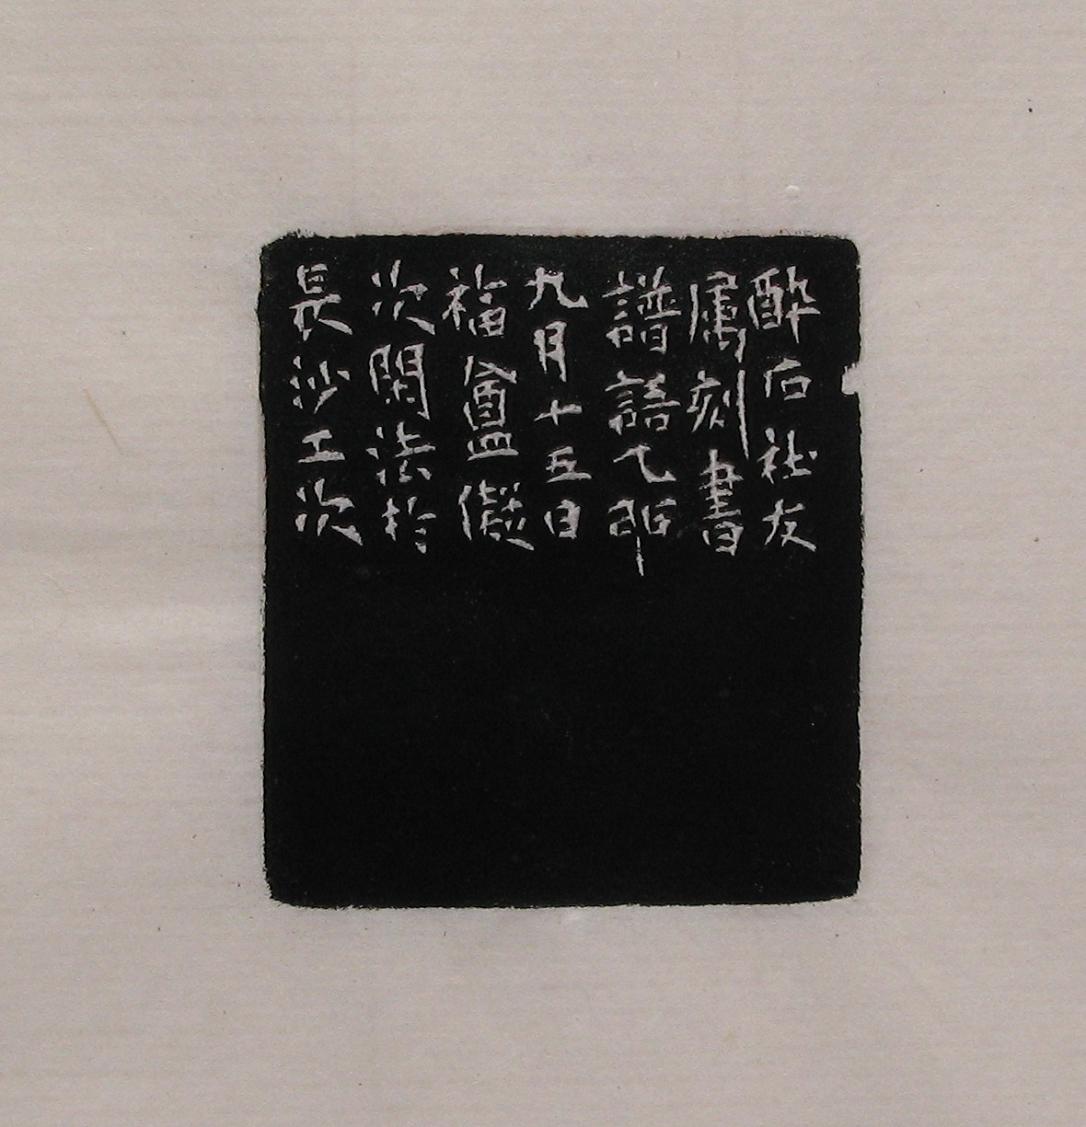 酔石社友
属刻書
譜語乙卯
九月十五日
福盦儗
次閑法於
長沙工次